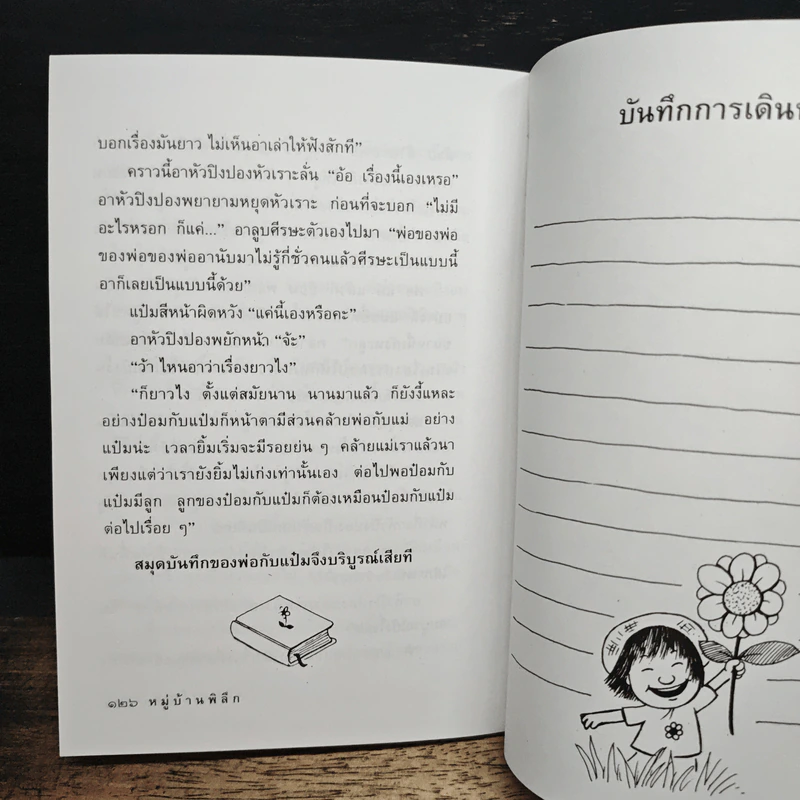 บอกเรื่องมันยาว ไม่เห็นอาเล่าให้ฟังสักที”
คราวนี้อาหัวปิงปองหัวเราะลั่น “อ้อ เรื่องนี้เองเหรอ”
อาหัวปิงปองพยายามหยุดหัวเราะ ก่อนที่จะบอก “ไม่มี
อะไรหรอก ก็แค่...” อาลูบศีรษะตัวเองไปมา “พ่อของพ่อ
ของพ่อของพ่อของพ่ออานับมาไม่รู้กี่ชั่วคนแล้วศีรษะเป็นแบบนี้
อาก็เลยเป็นแบบนี้ด้วย”
แป๋มสีหน้าผิดหวัง “แค่นี้เองหรือคะ”
อาหัวปิงปองพยักหน้า “จ้ะ”
“ว้า ไหนอาว่าเรื่องยาวไง”
“ก็ยาวไง ตั้งแต่สมัยนาน นานมาแล้ว ก็ยังงี้แหละ
อย่างป๋อมกับแป๋มก็หน้าตามีส่วนคล้ายพ่อกับแม่ อย่าง
แป๋มน่ะ เวลายิ้มเริ่มจะมีรอยย่น ๆ คล้ายแม่เราแล้วนา
เพียงแต่ว่าเรายังยิ้มไม่เก่งเท่านั้นเอง ต่อไปพอป๋อมกับ
แป๋มมีลูก ลูกของป๋อมกับแป๋มก็ต้องเหมือนป๋อมกับแป๋ม
ต่อไปเรื่อย ๆ”
สมุดบันทึกของพ่อกับแป๋มจึงบริบูรณ์เสียที
๑๒๖ หมู่บ้านพิลึก
บันทึกการเดิน